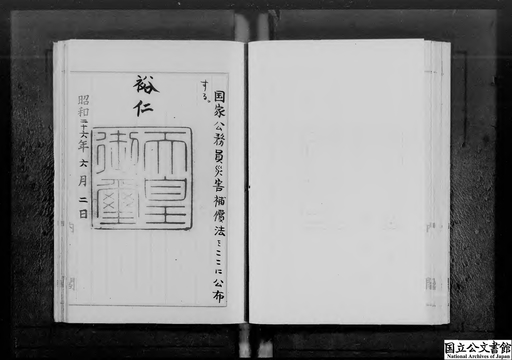 国家公務員災害補償法をここに公布
する。
裕仁
天皇
御璽
昭和二十六年六月二日
国立公文書館
National Archives of Japan